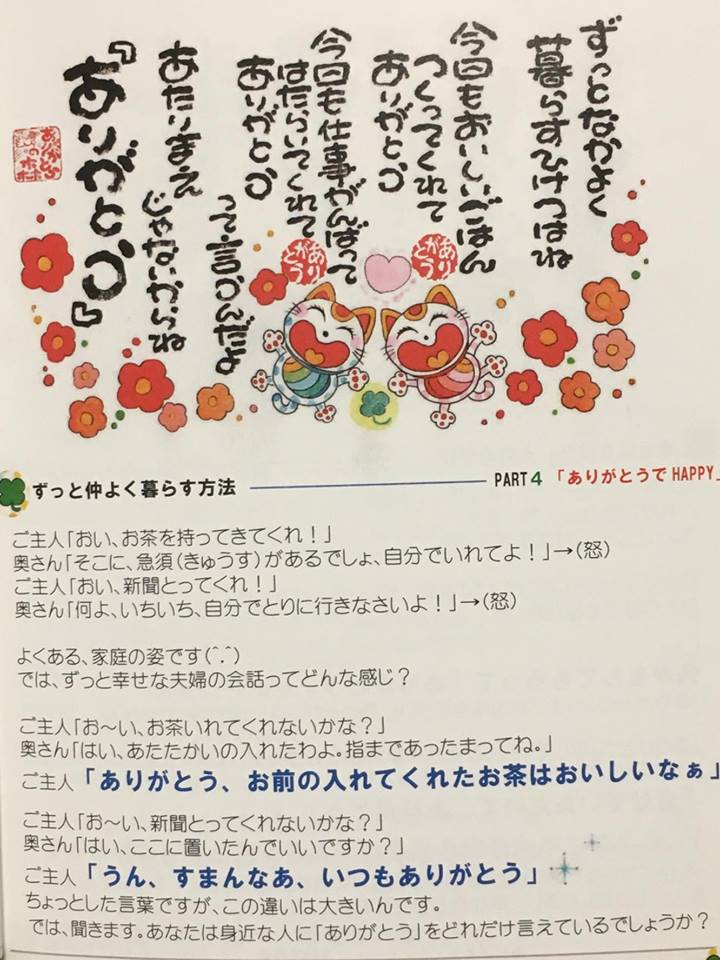 ずっとなかよく
暮らすひけつはね
今日もおいしいごはん
つくってくれて
ありがとう
今日も仕事がんばって
はたらいてくれて
ありがとう
って言うんだよ
あたりまえ
じゃないからね
『ありがとう』
ありがとう
ありがとう
ずっと仲よく暮らす方法
PART4 「ありがとうでHAPPY」
ご主人「おい、お茶を持ってきてくれ！」
奥さん「そこに、急須(きゅうす)があるでしょ、自分でいれてよ！」→(怒)
ご主人「おい、新聞とってくれ！」
奥さん「何よ、いちいち、自分でとりに行きなさいよ！」→(怒)
よくある、家庭の姿です(^.^)
では、ずっと幸せな夫婦の会話ってどんな感じ？
ご主人「お～い、お茶いれてくれないかな？」
奥さん「はい、あたたかいの入れたわよ。指まであったまってね。」
ご主人「ありがとう、お前の入れてくれたお茶はおいしいなぁ」
ご主人「お～い、新聞とってくれないかな？」
奥さん「はい、ここに置いたんでいいですか？」
ご主人「うん、すまんなあ、いつもありがとう」
ちょっとした言葉ですが、この違いは大きいんです。
では、聞きます。あなたは身近な人に「ありがとう」をどれだけ言えているでしょうか？